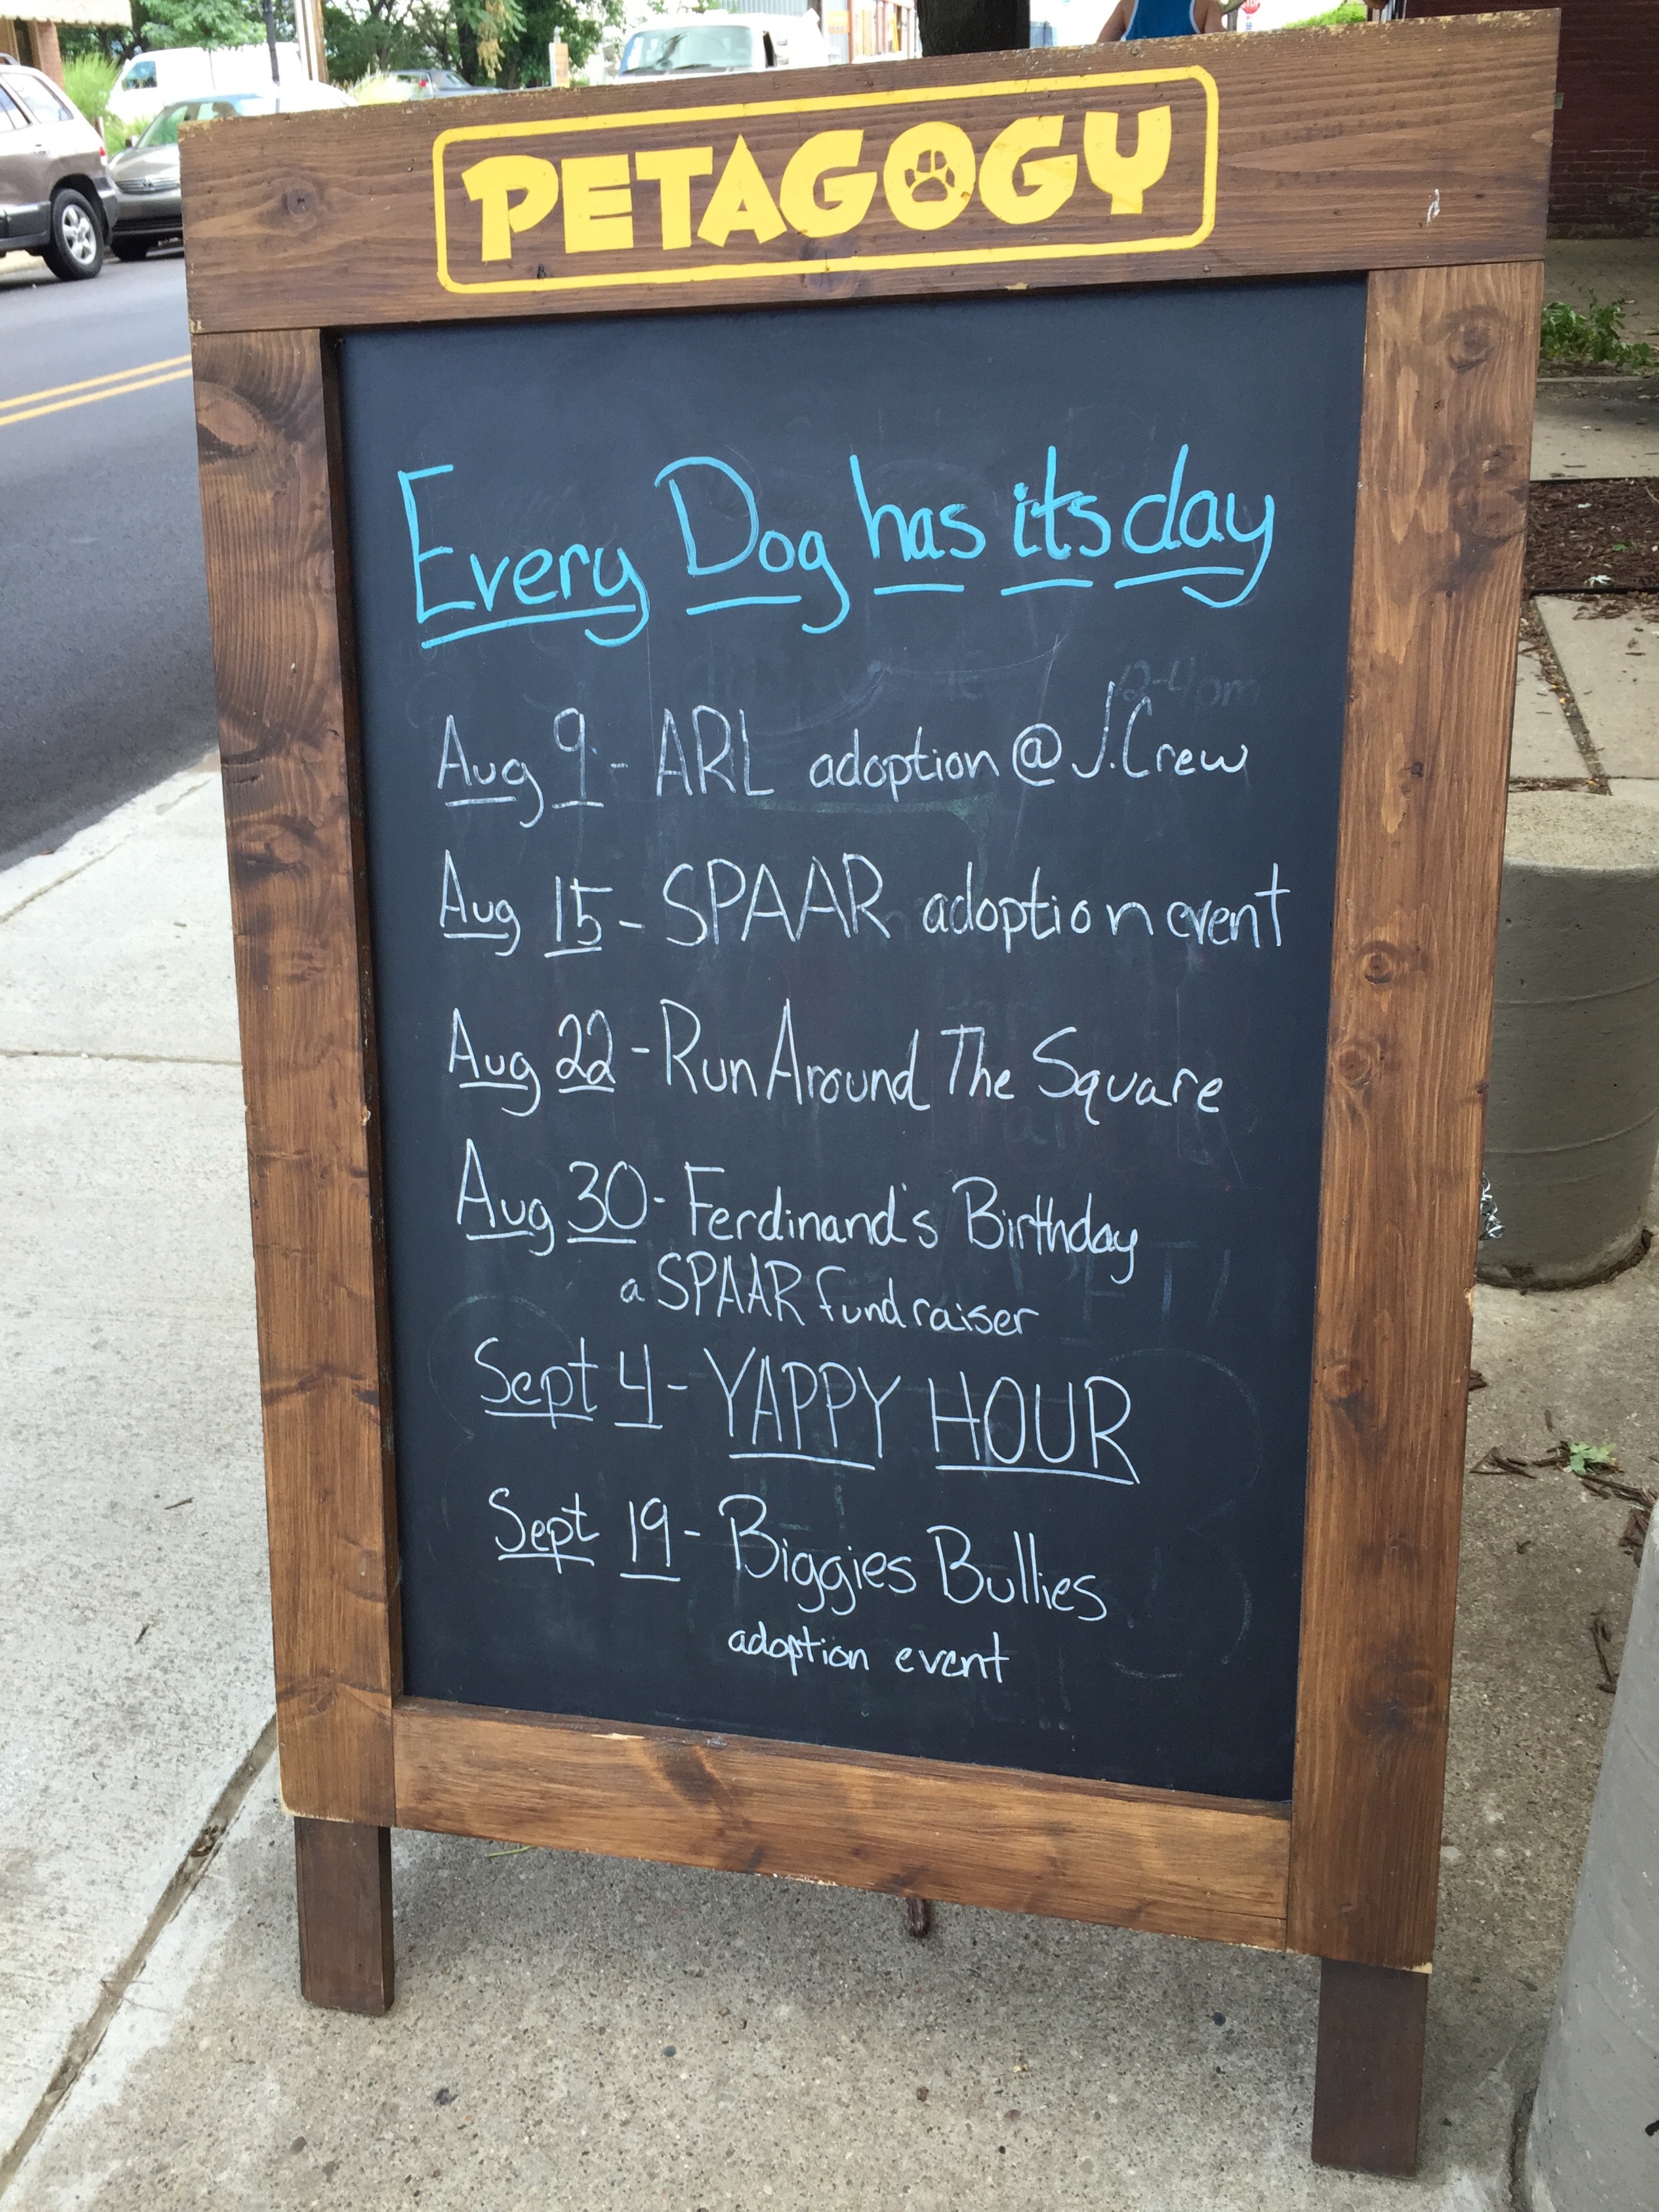 PETAGOGY
Every Dog has its day
12-4pm
Aug 9 - ARL adoption @ J.Crew
Aug 15 - SPAAR adoption event
Aug 22 - Run Around The Square
Aug 30 - Ferdinand's Birthday
a SPAAR fundraiser
Sept 4 - YAPPY HOUR
Sept 19 - Biggies Bullies
adoption event